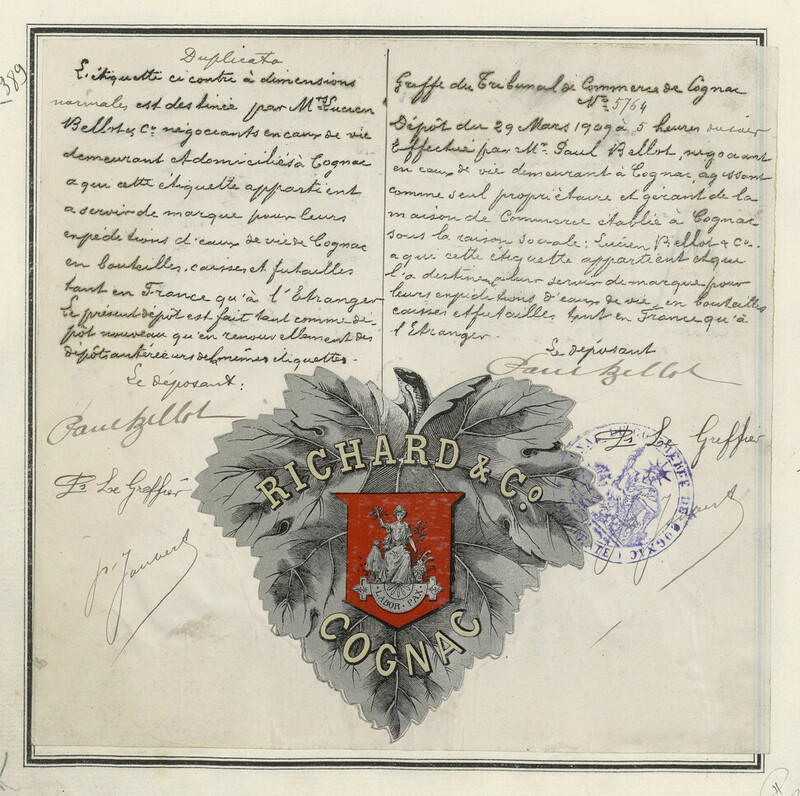 389
Duplicata
L'étiquette ci contre à dimensions
normales est destinée par Mrs Lucien
Bellot & Co négociants en eaux de vie
demeurant et domiciliés à Cognac
a qui cette étiquette appartient
a servir de marque pour leurs
expéditions d'eaux de vie de Cognac
en bouteilles, caisses et futailles
tant en France qu'à l'Etranger
Le présent dépôt est fait tant comme dé-
pôt nouveau qu'en renouvellement des
dépôts antérieurs de mêmes étiquettes.
Le déposant:
Paul Bellot
Le Greffier
p. Jauvert
Greffe du Tribunal de Commerce de Cognac
No 5764
Dépôt du 29 Mars 1909 à 5 heures du soir
Effectué par Mr. Paul Bellot, négociant
en eaux de vie demeurant à Cognac, agissant
comme seul propriétaire et gérant de la
maison de Commerce etablie à Cognac
sous la raison sociale: Lucien Bellot & Co.
a qui cette étiquette appartient et qui
l'a destinée a leur servir de marque pour
leurs expéditions d'eaux de vie en bouteilles
caisses et futailles tant en France qu'à
l'Etranger.
Le déposant
Paul Bellot
Le Greffier
RICHARD & Co
LABOR · PAX
COGNAC